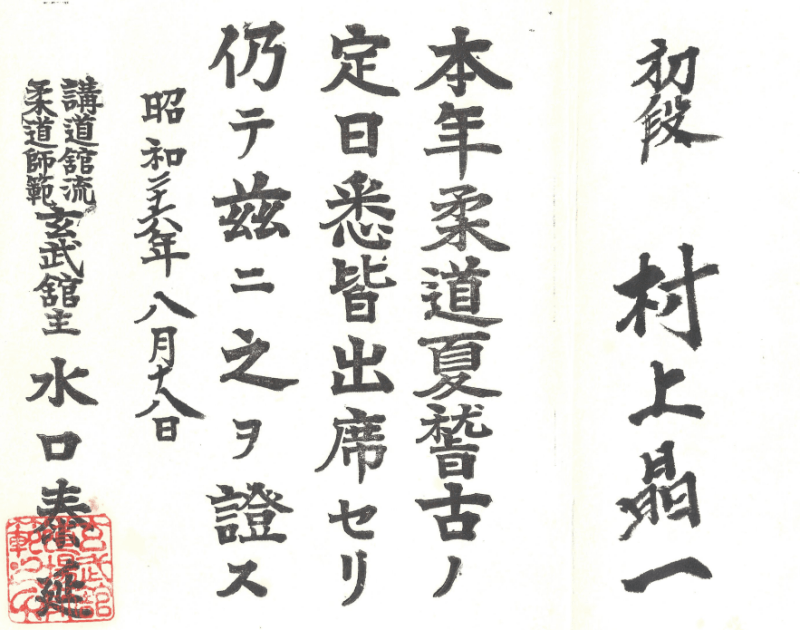 初段 村上晶一
本年柔道夏稽古ノ
定日悉皆出席セリ
仍テ茲ニ之ヲ證ス
昭和二十六年八月十八日
講道舘流
柔道師範
玄武舘主 水口泰延